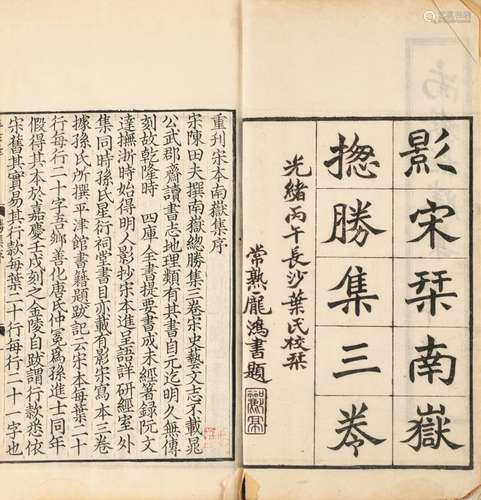 影宋栞南嶽
揔勝集三卷
光緒丙午長沙葉氏校栞
常熟龐鴻書題
重刊宋本南嶽集序
宋陳田夫撰南嶽總勝集三卷宋史藝文志不載晁
公武郡齋讀書志地理類有其書自元迄明久無傳
刻故乾隆時　四庫全書提要書成未經著錄阮文
達撫浙時始得明人影抄宋本進呈語詳研經室外
集同時孫氏星衍祠堂書目亦載有影宋寫本三卷
據孫氏所撰平津館書籍題跋記云宋本每葉二十
行每行二十字吾鄉善化唐氏仲冕爲孫進士同年
假得其本於嘉慶壬戌刻之金陵自跋謂行款悉依
宋舊其實易其行款每葉二十行每行二十一字也